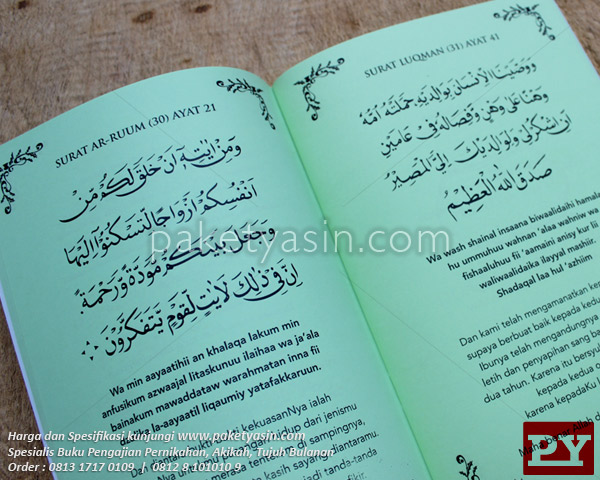 SURAT AR-RUUM (30) AYAT 21
وَمِنْ اٰيٰتِهٖٓ اَنْ خَلَقَ لَكُمْ مِّنْ
اَنْفُسِكُمْ اَزْوَاجًا لِّتَسْكُنُوْٓا اِلَيْهَا
وَجَعَلَ بَيْنَكُمْ مَّوَدَّةً وَّرَحْمَةً ۗ
اِنَّ فِيْ ذٰلِكَ لَاٰيٰتٍ لِّقَوْمٍ يَّتَفَكَّرُوْنَ
Wa min aayaatihii an khalaqa lakum min
anfusikum azwaajal litaskunuu ilaihaa wa ja'ala
bainakum mawaddataw warahmatan inna fii
dzalika la-aayaatil liqaumiy yatafakkaruun.
kekuasanNya ialah
hidup dari jenismu
sampingnya,
kasih sayang diantaramu.
tanda-tanda
SURAT LUQMAN (31) AYAT 41
وَوَصَّيْنَا الْاِنْسَانَ بِوَالِدَيْهِ حَمَلَتْهُ اُمُّهُ
وَهْنًا عَلٰى وَهْنٍ وَفِصَالُهُ فِيْ عَامَيْنِ
اَنِ اشْكُرْلِيْ وَلِوَالِدَيْكَ اِلَيَّ الْمَصِيْرُ
صَدَقَ اللهُ الْعَظِيْمُ
Wa wash shainal insaana biwaalidaihi hamala
hu ummuhuu wahnan 'alaa wahniw wa
fishaaluhuu fii 'aamaini anisy kur lii
waliwaalidaika ilayyal mashiir.
Shadaqal laa hul' azhiim
Dan kami telah mengamanatkan
supaya berbuat baik kepada
Ibunya telah mengandungnya
letih dan penyapihan sang
dua tahun. Karena itu
kepada kedua
karena kepadaKu
Maha benar Allah
paketyasin.com
Harga dan Spesifikasi kunjungi www.paketyasin.com
Spesialis Buku Pengajian Pernikahan, Akikah, Tujuh Bulanan
Order : 0813 1717 0109 / 0812 8 101010 9
PY